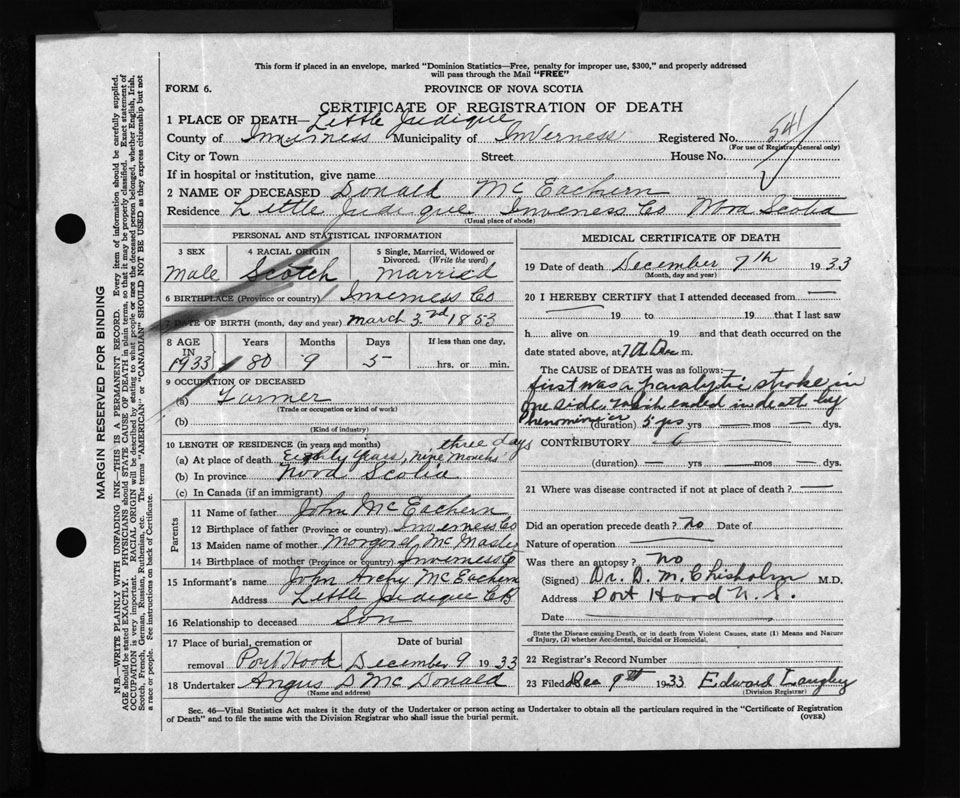 This form if placed in an envelope, marked "Dominion Statistics—Free, penalty for improper use, $300," and properly addressed
will pass through the Mail "FREE"
FORM 6. PROVINCE OF NOVA SCOTIA
CERTIFICATE OF REGISTRATION OF DEATH
1 PLACE OF DEATH—Little Judique
County of Inverness Municipality of Inverness Registered No. 541
(For use of Registrar General only)
City or Town Street House No.
If in hospital or institution, give name
2 NAME OF DECEASED Donald McEachern
Residence Little Judique Inverness Co Nova Scotia
(Usual place of abode)
PERSONAL AND STATISTICAL INFORMATION
3 SEX 4 RACIAL ORIGIN 5 Single, Married, Widowed or
Divorced. (Write the word)
Male Scotch married
6 BIRTHPLACE (Province or country) Inverness Co
7 DATE OF BIRTH (month, day and year) March 3rd 1853
8 AGE Years Months Days If less than one day,
IN
1933 80 9 5 hrs. or min.
9 OCCUPATION OF DECEASED
(a) Farmer
(Trade or occupation or kind of work)
(b)
(Kind of industry)
10 LENGTH OF RESIDENCE (in years and months) three days
(a) At place of death Eighty years, Nine Months
(b) In province Nova Scotia
(c) In Canada (if an immigrant)
Parents
11 Name of father John McEachern
12 Birthplace of father (Province or country) Inverness Co
13 Maiden name of mother McMaster
14 Birthplace of mother (Province or country) Inverness Co
15 Informant's name John McEachern
Address Little Judique CB
16 Relationship to deceased Son
17 Place of burial, cremation or Date of burial
removal Port Hood December 9 1933
18 Undertaker Angus D McDonald
(Name and address)
MEDICAL CERTIFICATE OF DEATH
19 Date of death December 7th 1933
(Month, day and year)
20 I HEREBY CERTIFY that I attended deceased from —
— 19 to — 19 that I last saw
h. alive on 19 and that death occurred on the
date stated above, at 7th Dec m.
The CAUSE of DEATH was as follows:
first was a paralytic stroke in
one side which ended in death by
(duration) 5 yrs yrs — mos — dys.
CONTRIBUTORY
(duration) — yrs — mos — dys.
21 Where was disease contracted if not at place of death? —
Did an operation precede death? no Date of
Nature of operation —
Was there an autopsy? no
(Signed) Dr. D. M. Chisholm M.D.
Address Port Hood N.S.
Date —
State the Disease causing Death, or in death from Violent Causes, state (1) Means and Nature
of Injury, (2) whether Accidental, Suicidal or Homicidal.
22 Registrar's Record Number
23 Filed Dec 9th 1933 Edward Langley
(Division Registrar)
Sec. 46—Vital Statistics Act makes it the duty of the Undertaker or person acting as Undertaker to obtain all the particulars required in the "Certificate of Registration
of Death" and to file the same with the Division Registrar who shall issue the burial permit. (OVER)
MARGIN RESERVED FOR BINDING
N.B.—WRITE PLAINLY WITH UNFADING INK—THIS IS A PERMANENT RECORD. Every item of information should be carefully supplied.
AGE should be stated EXACTLY. PHYSICIANS should STATE CAUSE OF DEATH in plain terms, so that it may be properly classified. Exact statement of
OCCUPATION is very important. RACIAL ORIGIN will be described by stating to what people or race the deceased person belonged, whether English, Irish,
Scotch, French, German, Russian, Ruthenian, etc. The terms "AMERICAN" or "CANADIAN" SHOULD NOT BE USED as they express citizenship but not
a race or people. See instructions on back of Certificate.